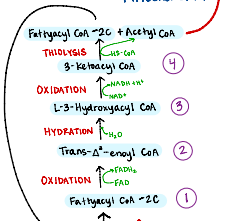 Fattyacyl CoA -2C + Acetyl CoA
THIOLYSIS
HS-CoA
3-Ketoacyl CoA 4
OXIDATION
NADH+H⁺
NAD⁺
L-3-Hydroxyacyl CoA 3
HYDRATION
H₂O
Trans-Δ²-enoyl CoA 2
OXIDATION
FADH₂
FAD
Fattyacyl CoA -2C 1